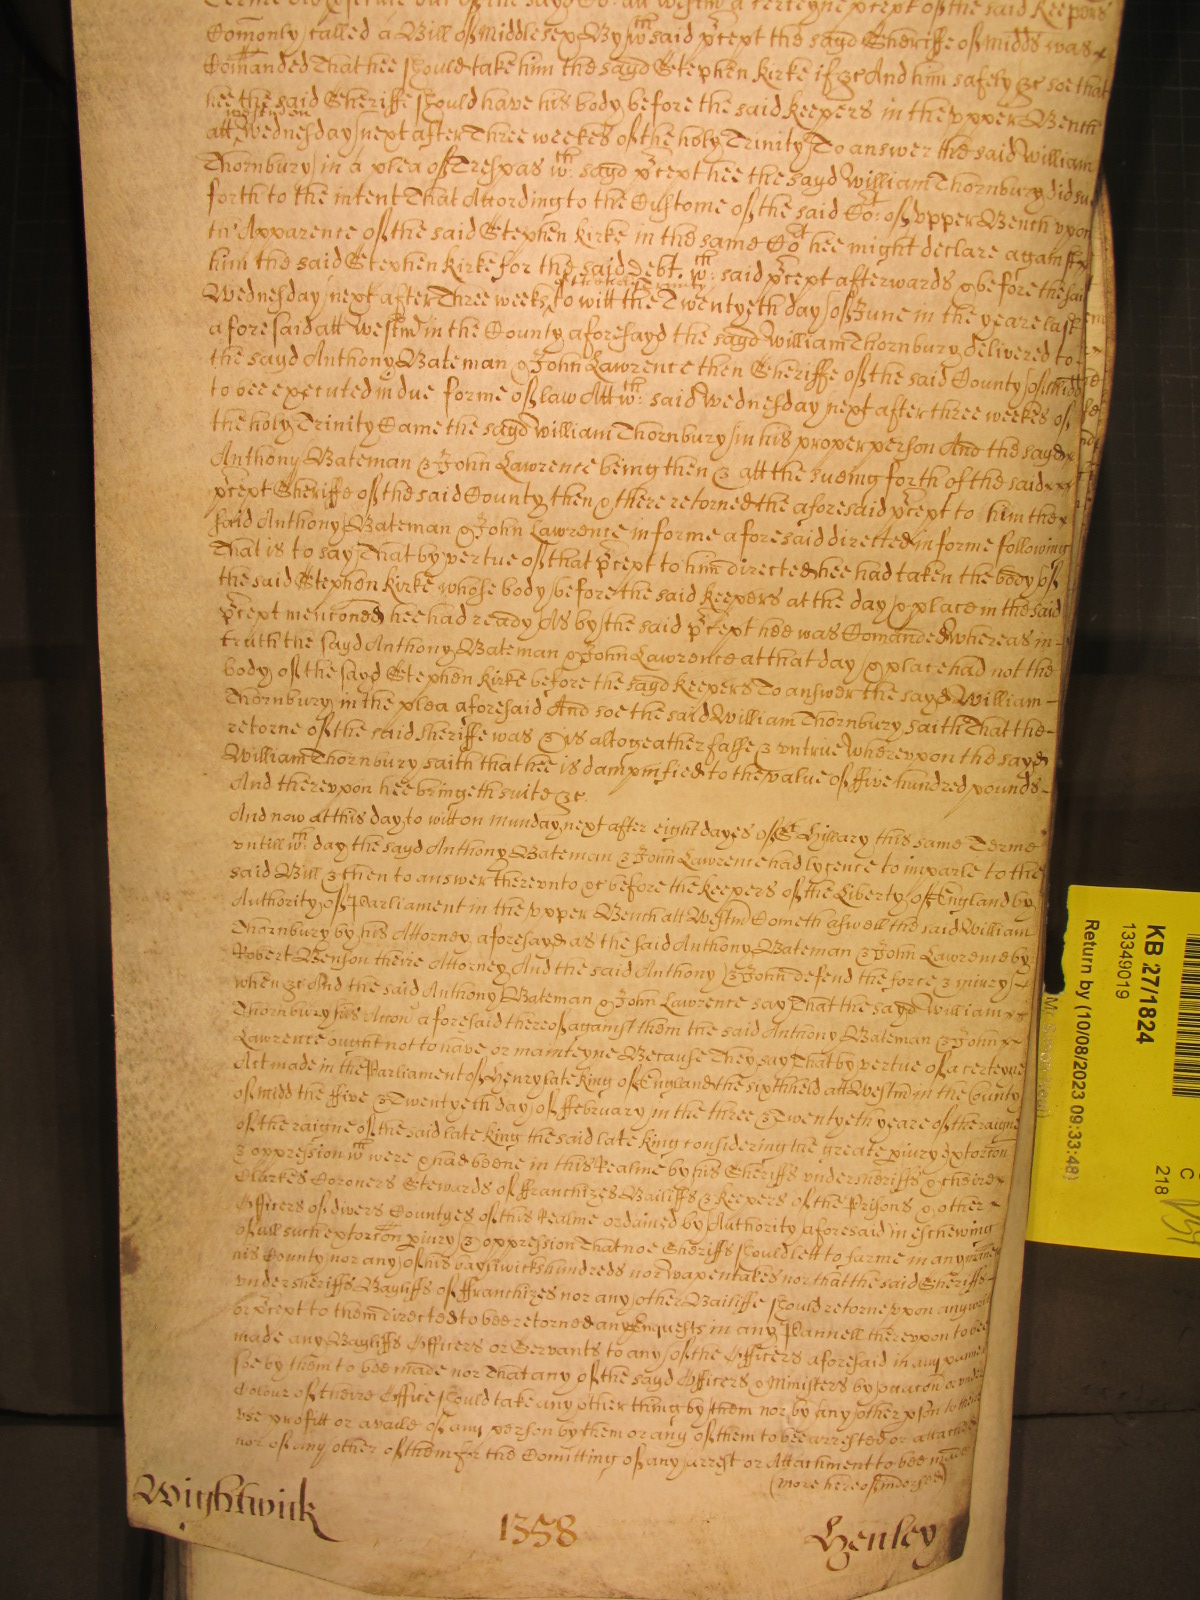 Comonly called a Bill of Middlesex By wch said pcept the sayd Sheriffe of Midds was
Comanded That hee should take him the sayd Stephen Kirke if &c And him safely &c soe that
hee the said Sheriffe should have his body before the said keepers in the upper Bench
att Westm on Wednesday next after Three weekes of the holy Trinity To answer the said William
Thornbury in a plea of Trespas wch sayd pcept hee the sayd William Thornbury did sue
forth to the intent That According to the Custome of the said Cot of upper Bench upon
th Apparence of the said Stephen Kirke in the same Cot hee might declare against
him the said Stephen Kirke for the said Debt. wch said pcept afterwards & before the said
Wednesday next after Three weeks of the holy Trinity to witt the Twentyeth day of June in the yeare last
aforesaid att Westm in the County aforesayd the sayd William Thornbury delivered to
the sayd Anthony Bateman & John Lawrence then Sheriffe of the said County of Midd
to bee executed in due forme of law Att wch said Wednesday next after three weekes of
the holy Trinity Came the sayd William Thornbury in his proper person And the sayd
Anthony Bateman & John Lawrence being then & att the sueing forth of the said
pcept Sheriffe of the said County then & there returned the aforesaid pcept to him the
said Anthony Bateman & John Lawrence in forme aforesaid directed in forme following
That is to say That by vertue of that pcept to him directed hee had taken the body of
the said Stephen Kirke whose body before the said keepers at the day & place in the said
pcept menconed hee had ready As by the said pcept hee was Comanded whereas in
truth the sayd Anthony Bateman & John Lawrence at that day & place had not the
body of the sayd Stephen Kirke before the sayd keepers To answer the sayd William
Thornbury in the plea aforesaid And soe the said William Thornbury saith That the
retorne of the said Sheriffe was & is altogeather false & untrue whereupon the sayd
William Thornbury saith that hee is dampnified to the value of ffive hundred pounds
And thereupon hee bringeth suite &c
And now at this day to witt on Munday next after eight dayes of St Hillary this same Terme
untill wch day the sayd Anthony Bateman & John Lawrence had lycence to imparle to the
said Bill & then to answer thereunto &c before the keepers of the Liberty of England by
Authority of Parliament in the upper Bench att Westm Cometh aswell the said William
Thornbury by his Attorney aforesayd as the said Anthony Bateman & John Lawrence by
Robert Benson theire Attorney And the said Anthony & John defend the force & iniury
when &c And the said Anthony Bateman & John Lawrence say That the sayd William
Thornbury his Accon aforesaid thereof against them the said Anthony Bateman & John
Lawrence ought not to have or mainteyne Because They say That by vertue of a certeyne
Act made in the Parliament of Henry late king of England the sixth held att Westm in the County
of Midd the ffive & Twentyeth day of ffebruary in the three & Twentyeth yeare of the raigne
of the raigne of the said late king the said late king considering the greate piury extorcon
& oppression wch were & had beene in this Realme by his Sheriffs undersheriffs & theire
Clarkes Coroners Stewards of ffranchizes Bailiffs & keepers of the Prisons & other
Officers of divers Countyes of this Realme ordained by Authority aforesaid in eschewing
of all such extorcon piury & oppression That noe Sheriffs should lett to farme in any manner
his County nor any of his bayliwicks hundreds nor wapentakes nor that the said Sheriffs
undersheriffs Bayliffs of ffranchizes nor any other Bailiffe should retorne upon any writ
or pcept to them directed to bee retorned any Enquests in any Pannell thereupon to bee
made any Bayliffs Officers or Servants to any of the Officers aforesaid in any pannell
soe by them to bee made nor That any of the sayd Officers & Ministers by occacon or under
Colour of theire Office should take any other thing by them nor by any other pson to their
use profitt or availe of any person by them or any of them to bee arrested or attached
nor of any other of them for the Comitting of any arrest or Attachment to bee made
(more hereof indorsed)
Wightwick
1358
Henley
KB 27/1824
13349019
Return by (10/08/2023 09:33:48)
C
218